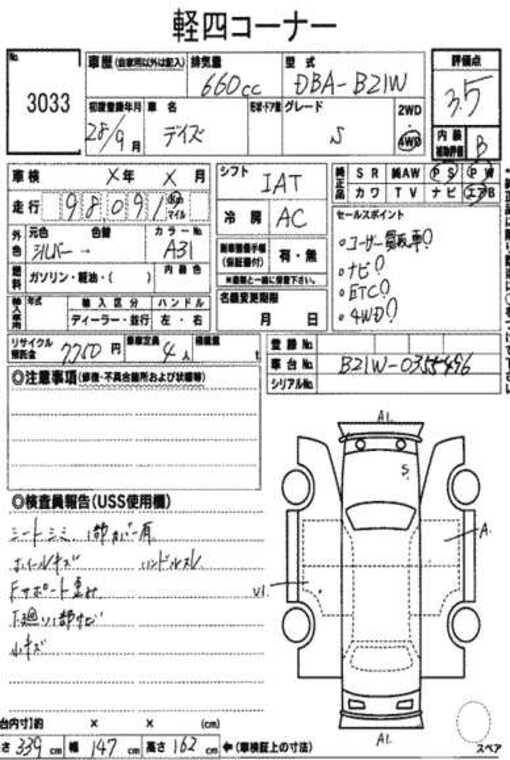 軽四コーナー
No.
3033
車歴 (自家用以外は記入)
排気量
660cc
型式
DBA-B21W
評価点
3.5
初度登録年月
28/9月
車名
デイズ
形状・ドア数
グレード
S
2WD
4WD
内装
補助評価
B
車検
×年 ×月
シフト
IAT
純正品
SR 純AW PS PW
カワ TV ナビ エアB
走行
98091
km
マイル
冷房
AC
セールスポイント
。ユーザー買取車!
。ナビ!
。ETC!
。4WD!
外色
元色 色替
シルバー →
カラーNo.
A31
新車整備手帳
(保証書付)
有・無
※書類と一緒に保管下さい。
燃料
ガソリン・軽油・( )
内装色
輸入車用
年式
輸入区分
ディーラー・並行
ハンドル
左・右
名義変更期限
月 日
リサイクル
預託金
7750円
乗車定員
4人
積載量
t
登録No.
車台No.
B21W-0355496
シリアルNo.
◎注意事項(修復・不具合箇所および状態等)
◎検査員報告(USS使用欄)
シートシミ、1部カバー有
ホイールキズ ハンドルスレ
Fサポート歪み
下廻り1部サビ
小キズ
A1.
S.
A.
U1
A1.
スペア
台内寸)約 × × (cm)
さ 339 cm 幅 147 cm 高さ 162 cm ←(車検証上の寸法)